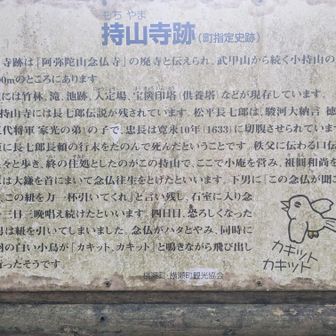 もち やま
持山寺跡（町指定史跡）
寺跡は「阿弥陀山念仏寺」の廃寺と伝えられ、武甲山から続く小持山の
00mのところにあります。
には竹林、滝、池跡、入定場、宝篋印塔（供養塔）などが現存しています。
持山寺には長七郎伝説が残されています。松平長七郎は、駿河大納言 徳
代将軍"家光の弟"の子で、忠長は寛永10年（1633）に切腹させられていま
に長七郎長頼の行末をたのんで死んだということです。秩父に伝わる口伝
々と歩き、終の住処としたのがこの持山で、ここで小庵を営み、祖開和尚を
は大鎌を首にまいて念仏往生をとげたといいます。下男に「この念仏が聞こ
、この紐を力一杯引いてくれ」と言い残し、石室に入り念
三日三晩唱え続けたといいます。四日目、恐ろしくなった
男は紐を引いてしまいました。念仏がハタとやみ、同時に
羽の白い小鳥が「カキット、カキット」と鳴きながら飛び出し
去ったそうです
カキット
カキット
横瀬町・横瀬町観光協会